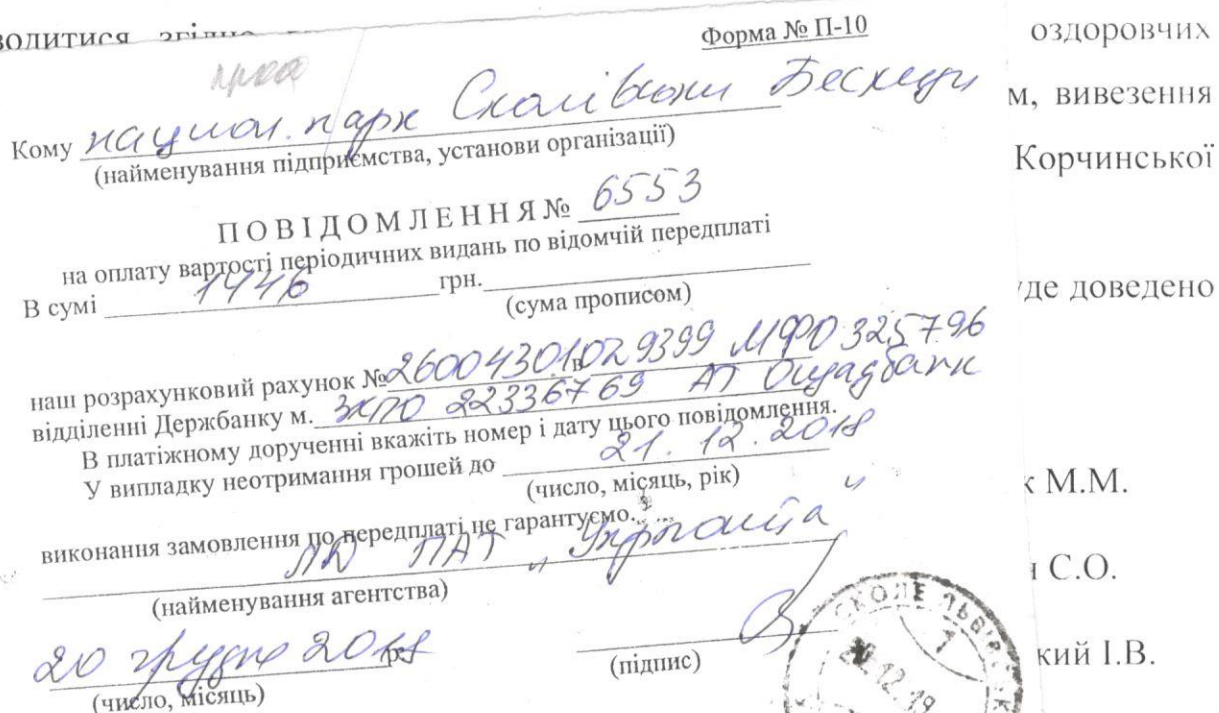 водитися згідно
оздоровчих
м, вивезення
Корчинської
уде доведено
к М.М.
С.О.
кий І.В.
Форма № П-10
Кому націон. парк Сколівські Бескиди
(найменування підприємства, установи організації)
ПОВІДОМЛЕННЯ № 6553
на оплату вартості періодичних видань по відомчій передплаті
В сумі 1446 грн.
(сума прописом)
наш розрахунковий рахунок № 26004301029399 в МФО 325796
відділенні Держбанку м. ЗКПО 22336769 АТ Ощадбанк
В платіжному дорученні вкажіть номер і дату цього повідомлення.
У випадку неотримання грошей до 21.12.2018
(число, місяць, рік)
виконання замовлення по передплаті не гарантуємо.
ЛД ПАТ „Укрпошта"
(найменування агентства)
20 грудня 2018 р.
(число, місяць)
(підпис)
СКОЛЕ ЛЬВІВСЬК
1